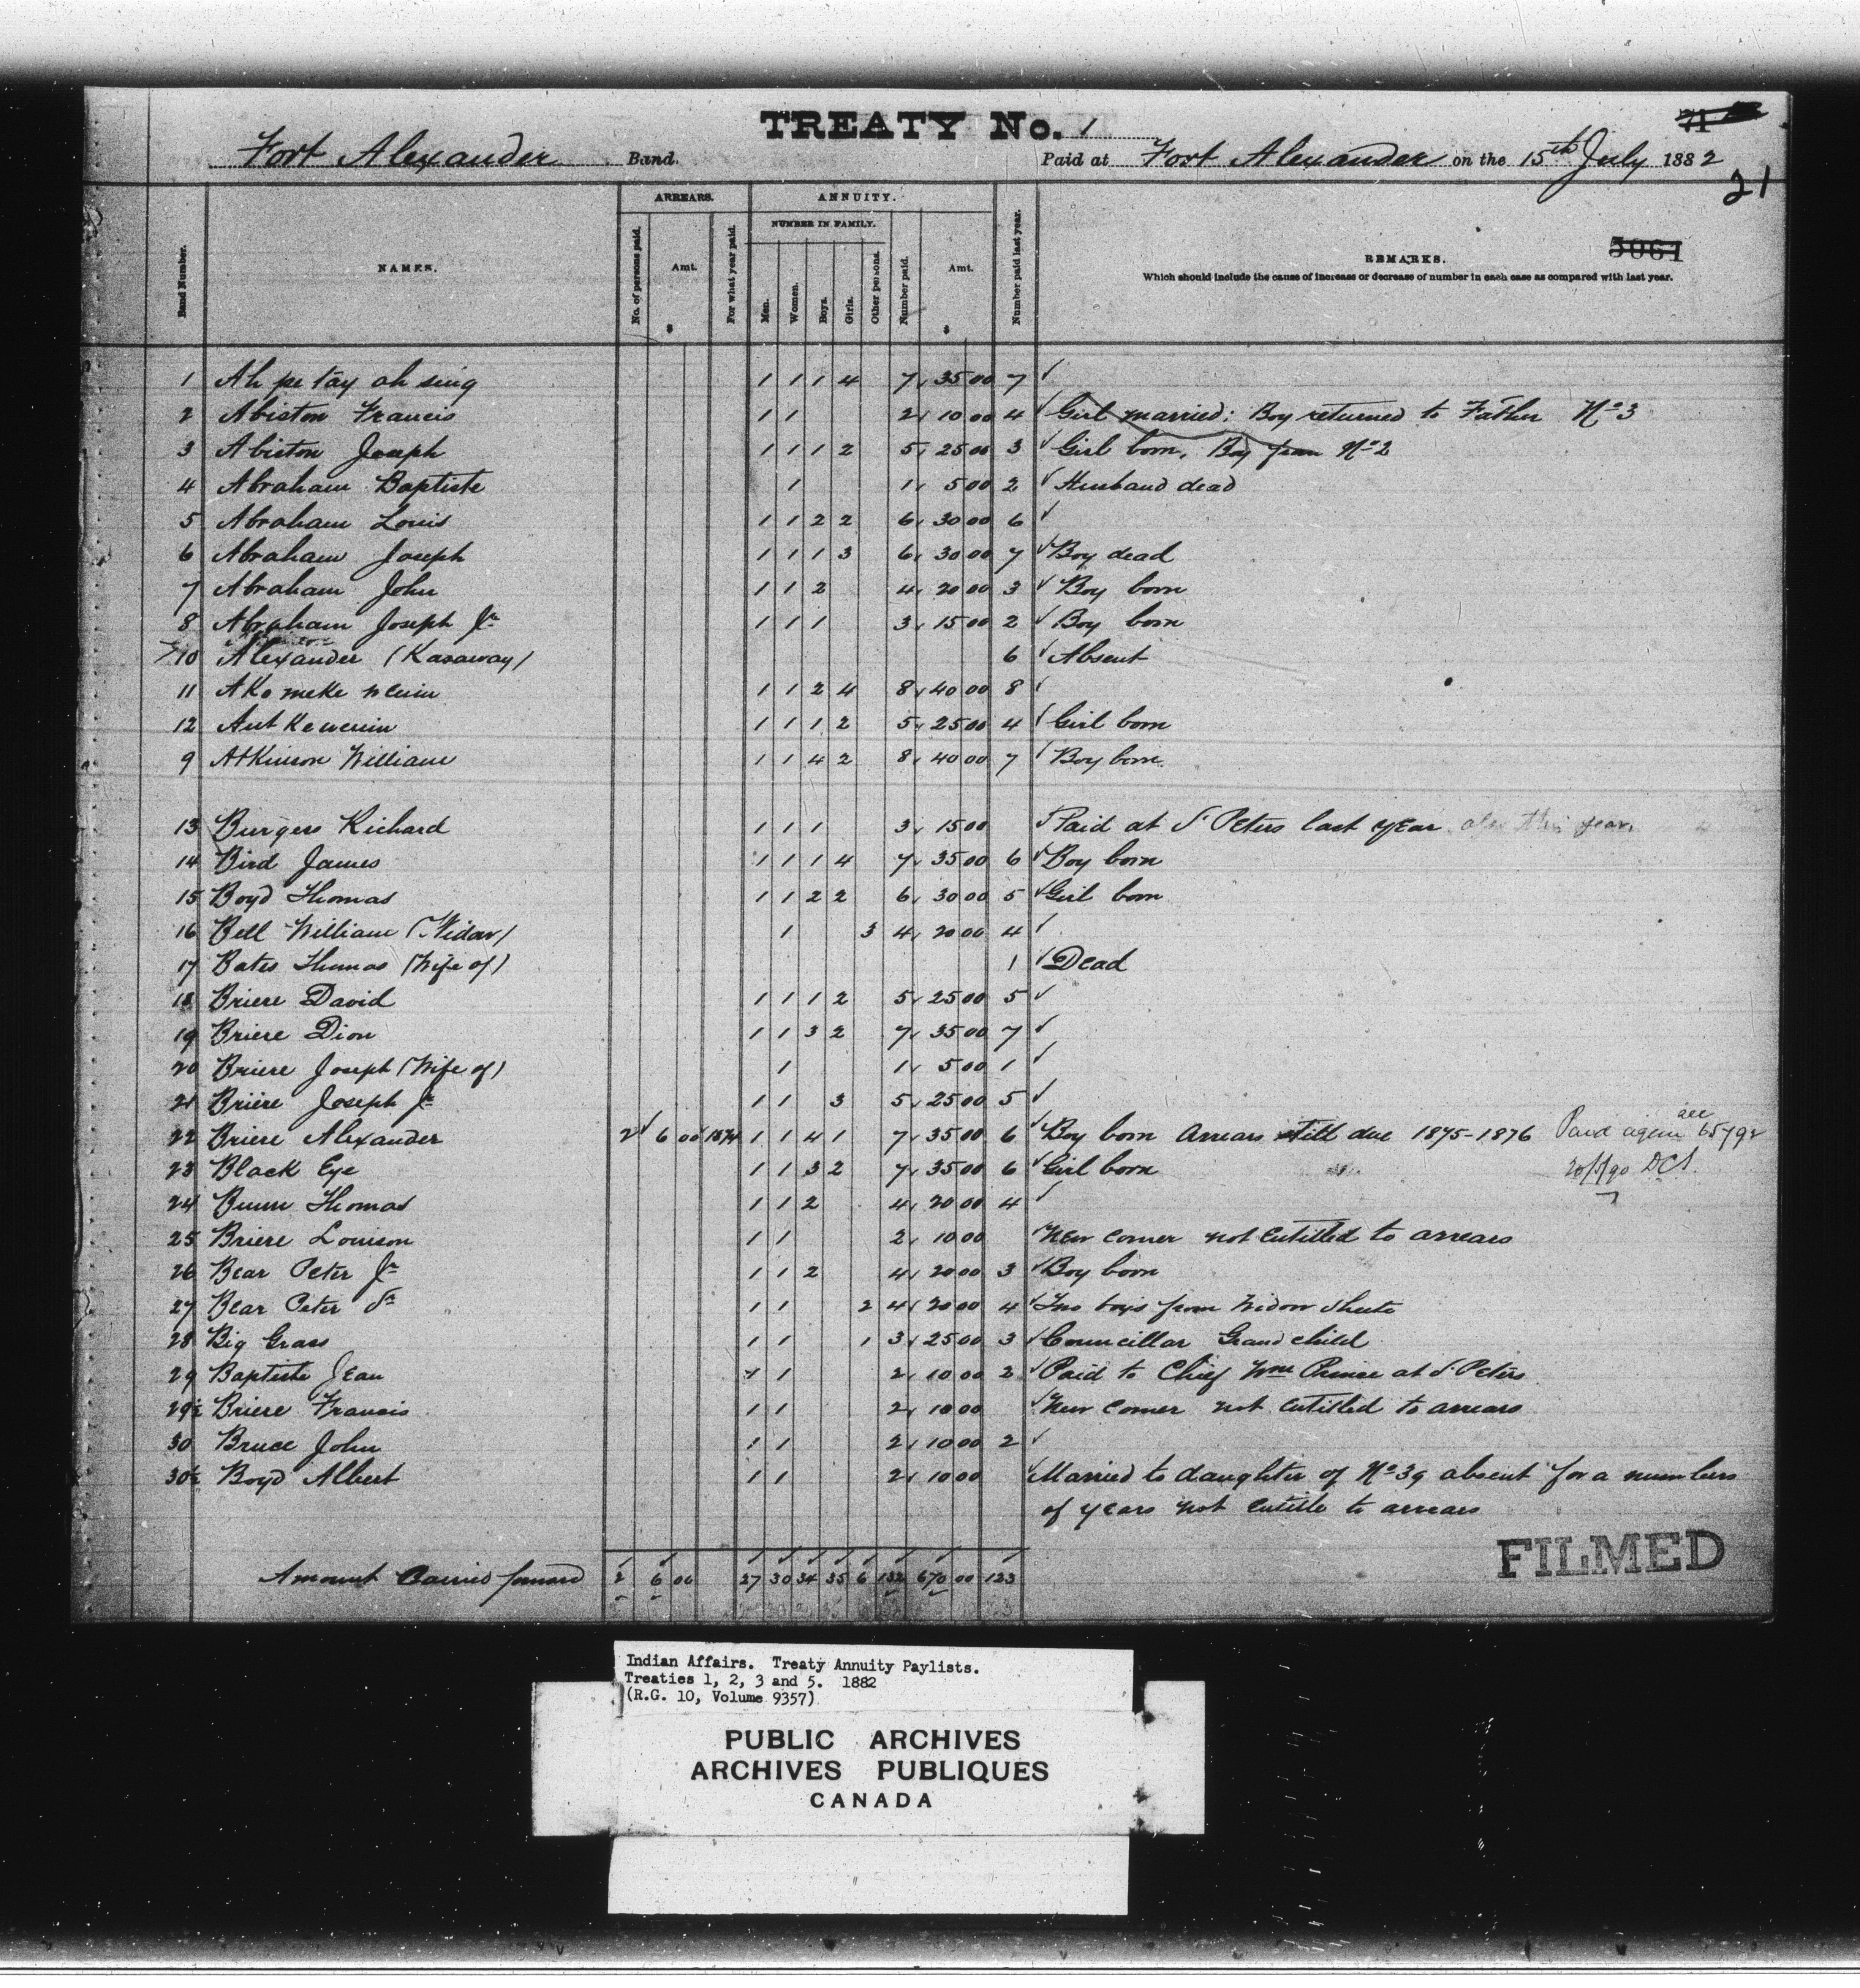 TREATY No. 1
71
Fort Alexander Band. Paid at Fort Alexander on the 15th July 1882
21
ARREARS. ANNUITY.
NUMBER IN FAMILY.
Band Number. NAMES. No. of persons paid. Amt. $ For what year paid. Men. Women. Boys. Girls. Other persons. Number paid. Amt. $ Number paid last year. REMARKS. 5061
Which should include the cause of increase or decrease of number in each case as compared with last year.
1 Ah pe tay ah sing 1 1 1 4 7 35 00 7
2 Abiston Francis 1 1 2 10 00 4 Girl married: Boy returned to Father No 3
3 Abiston Joseph 1 1 1 2 5 25 00 3 Girl born, Boy from No 2
4 Abraham Baptiste 1 1 5 00 2 Husband dead
5 Abraham Louis 1 1 2 2 6 30 00 6
6 Abraham Joseph 1 1 1 3 6 30 00 7 Boy dead
7 Abraham John 1 1 2 4 20 00 3 Boy born
8 Abraham Joseph Jr 1 1 1 3 15 00 2 Boy born
10 Alexander (Kasaway) 6 Absent
11 Ako meke 1 1 2 4 8 40 00 8
12 1 1 1 2 5 25 00 4 Girl born
9 Atkinson William 1 1 4 2 8 40 00 7 Boy born
13 Burgess Richard 1 1 1 3 15 00 Paid at St Peters last year also this year
14 Bird James 1 1 1 4 7 35 00 6 Boy born
15 Boyd Thomas 1 1 2 2 6 30 00 5 Girl born
16 Bell William (Widow) 1 3 4 20 00 4
17 Bates Thomas (Wife of) 1 Dead
18 Briere David 1 1 1 2 5 25 00 5
19 Briere Dion 1 1 3 2 7 35 00 7
20 Briere Joseph (Wife of) 1 1 5 00 1
21 Briere Joseph Jr 1 1 3 5 25 00 5
22 Briere Alexander 2 6 00 1874 1 1 4 1 7 35 00 6 Boy born Arrears still due 1875-1876 Paid again see 65792
23 Black Eye 1 1 3 2 7 35 00 6 Girl born 20/5/90 DCS.
24 Bunn Thomas 1 1 2 4 20 00 4
25 Briere Louison 1 1 2 10 00 New comer not entitled to arrears
26 Bear Peter Jr 1 1 2 4 20 00 3 Boy born
27 Bear Peter Sr 1 1 2 4 20 00 4 Two boys from Widow
28 Big Grass 1 1 1 3 25 00 3 Councillor Grand child
29 Baptiste Jean 1 1 2 10 00 2 Paid to Chief Wm Prince at St Peters
29½ Briere Francis 1 1 2 10 00 New comer not entitled to arrears
30 Bruce John 1 1 2 10 00 2
30½ Boyd Albert 1 1 2 10 00 Married to daughter of No 39 absent for a numbers
of years not entitle to arrears
FILMED
Amount Carried forward 2 6 00 27 30 34 35 6 132 670 00 123
Indian Affairs. Treaty Annuity Paylists.
Treaties 1, 2, 3 and 5. 1882
(R.G. 10, Volume 9357)
PUBLIC ARCHIVES
ARCHIVES PUBLIQUES
CANADA